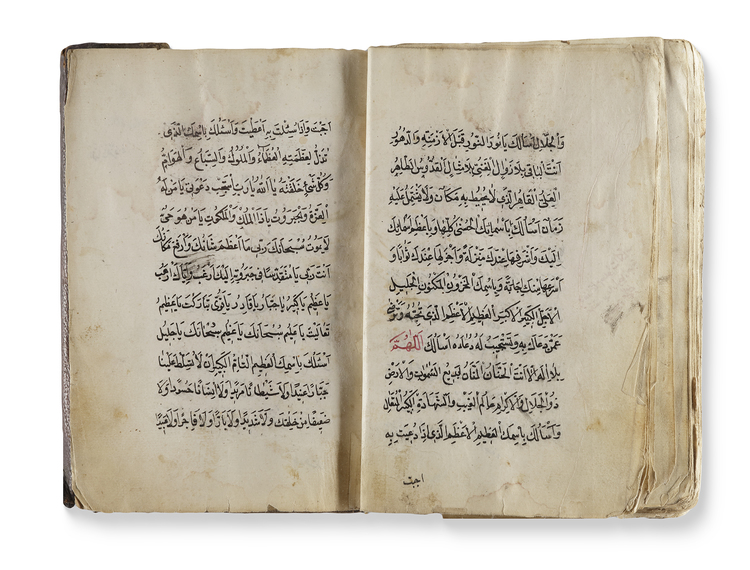 والجلال اسألك يا نور النور قبل الازمنة والدهور
انت الباقي بلا زوال الغني بلا مثال القدوس الطاهر
العلي القاهر الذي لا يحيط به مكان ولا يشتمل عليه
زمان اسألك باسمائك الحسنى كلها وباعظم اسمائك
اليك واشرفها عندك منزلة واجزلها عندك ثوابا و
اسرعها منك اجابة وباسمك المخزون المكنون الجليل
الاجل الكبير الاكبر العظيم الاعظم الذي تحبه وترضى
عمن دعاك به وتستجيب له دعاءه اسألك اللهم
بلا اله الا انت الحنان المنان بديع السموات والارض
ذو الجلال والاكرام عالم الغيب والشهادة الكبير المتعال
واسألك باسمك العظيم الاعظم الذي اذا دعيت به
اجبت
اجبت واذا سئلت به اعطيت واسئلك باسمك الذي
تذل لعظمته العظماء والملوك والسباع والهوام
وكل شيء خلقته يا الله يا رب استجب دعوتي يا من له
العزة والجبروت يا ذا الملك والملكوت يا من هو حي
لا يموت سبحانك ربي ما اعظم شانك وارفع مكانك
انت ربي يا متقدسا في جبروته اليك ارغب واياك ارهب
يا عظيم يا كبير يا جبار يا قادر يا قوي تباركت يا عظيم
تعاليت يا عليم سبحانك يا عظيم سبحانك يا جليل
اسئلك باسمك العظيم التام الكبير ان لا تسلط علينا
جبارا عنيدا ولا شيطانا مريدا ولا انسانا حسودا ولا
ضعيفا من خلقك ولا شديدا ولا بارا ولا فاجرا ولا عبيدا